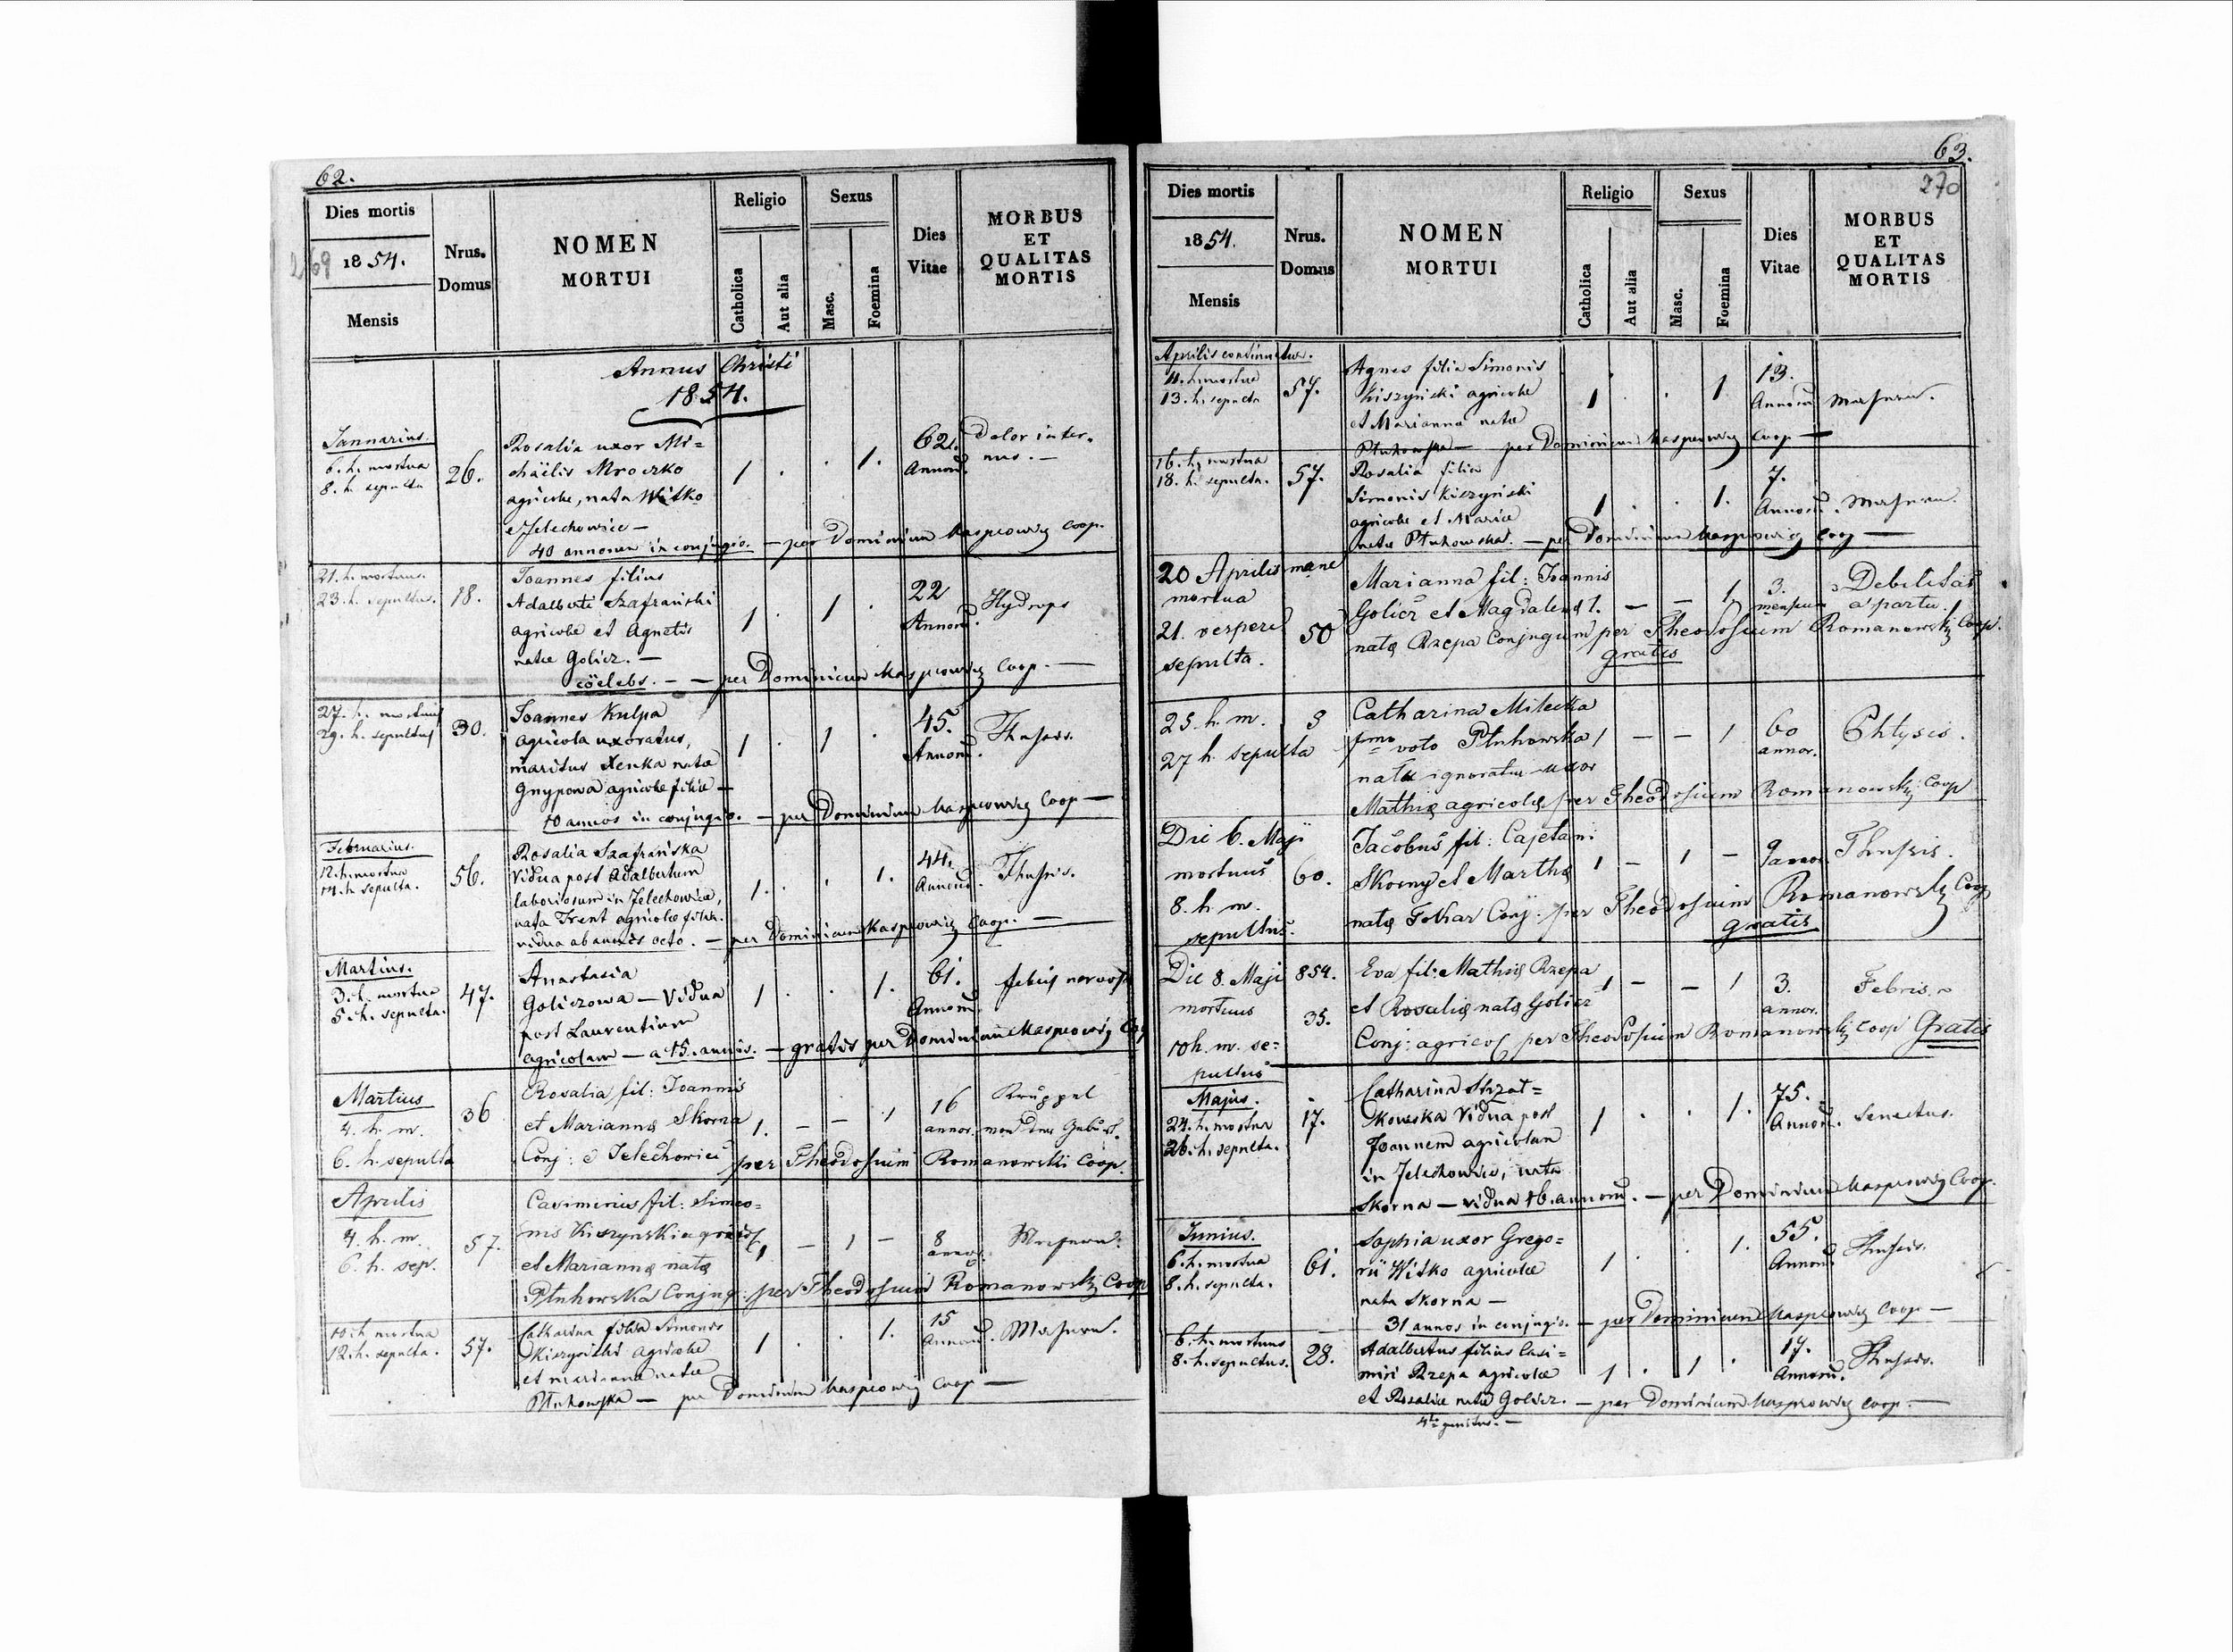 62.
Dies mortis
1854.
Mensis
Nrus.
Domus
NOMEN
MORTUI
Religio
Catholica
Aut alia
Sexus
Masc.
Foemina
Dies
Vitae
MORBUS
ET
QUALITAS
MORTIS
269
Annus Christi
1854.
Januarius.
6. h. mortua
8. h. sepulta
26.
Rosalia uxor Mi=
chäelis Mroczko
agricolae, nata Witko
e Jelechowice —
40 annorum in conjugio. — per Dominicum Kasprowicz Coop.
1 . . 1.
62.
Annorū.
Dolor inter-
nus. —
21. h. mortuus.
23. h. sepultus.
18.
Joannes filius
Adalberti Szafrański
agricolae et Agnetis
natae Golicz. —
cöelebs. — — per Dominicum Kasprowicz Coop. —
1 . 1 .
22
Annorū.
Hydrops
27. h. mortuus
29. h. sepultus
30.
Joannes Kulpa
agricola uxoratus,
maritus Xenka nata
Gnypowa agricolae filiae —
10 annos in conjugio. — per Dominicum Kasprowicz Coop —
1 . 1 .
45.
Annorū.
Februarius.
12. h. mortua
14. h. sepulta.
56.
Rosalia Szafrańska
vidua post Adalbertum
laboriosum in Jelechowice,
nata Trent agricolae filia.
vidua ab annis octo. — per Dominicum Kasprowicz Coop. —
1. . . 1.
44.
Annorū.
Martius.
3. h. mortua
5. h. sepulta.
47.
Anastasia
Goliczowa — Vidua
post Laurentium
agricolam — a 15. annis. — gratis per Dominicum Kasprowicz Coop
1 . . 1.
61.
Annorū.
febris nervosa
Martius
4. h. m.
6. h. sepulta
36
Rosalia fil: Joannis
et Mariannę Skorna
Conj: e Jelechowice per Theodosium Romanowski Coop.
1. — — 1
16
annor.
Krüppel
von der Geburt.
Aprilis
4. h. m.
6. h. sep.
57.
Casimirus fil: Simeo=
nis Kiszynski agricol
et Mariannę natę
Ptuhowska Conjug: per Theodosium Romanowski Coop
1 — 1 —
8
annor.
10. h. mortua
12. h. sepulta.
57.
Catharina filia Simonis
Kiszyński agricolae
et Marianna natae
Ptuhowska — per Dominicum Kasprowicz Coop —
1 . . 1.
15
Annorū.
63.
270
Dies mortis
1854.
Mensis
Nrus.
Domus
NOMEN
MORTUI
Religio
Catholica
Aut alia
Sexus
Masc.
Foemina
Dies
Vitae
MORBUS
ET
QUALITAS
MORTIS
Aprilis continuatur.
11. h. mortua
13. h. sepulta
57.
Agnes filia Simonis
Kiszyński agricolae
et Marianna natae
Ptuhowska — per Dominicum Kasprowicz Coop —
1 . . 1
13.
Annorū
16. h. mortua
18. h. sepulta.
57.
Rosalia filia
Simonis Kiszyński
agricolae et Mariae
natae Ptuhowska. — per Dominicum Kasprowicz Coop —
1 . . 1.
7.
Annorū.
20 Aprilis mane
mortua
21. vespere
sepulta.
50
Marianna fil: Joannis
Golicz et Magdalenę
natę Rzepa Conjugum per Theodosium Romanowski Coop.
gratis
1. — — 1.
3.
mensium
Debilitas
a partu.
25. h. m.
27 h. sepulta
Catharina Milecka
pmo voto Ptuhowska
nata ignoratur uxor
Mathię agricolę per Theodosium Romanowski Coop
1 — — 1
60
annor.
Phtysis.
Die 6. Maji
mortuus
8. h. m.
sepultus.
60.
Jacobus fil: Cajetani
Skorny et Marthę
natę Tokar Conj: per Theodosium Romanowski Coop
gratis
1 — 1 —
9 annor.
Die 8. Maji 854.
mortuus
10 h. m. se=
pultus
35.
Eva fil: Mathię Rzepa
et Rosalię natę Golicz
Conj: agricol per Theodosium Romanowski Coop Gratis
1 — — 1
3.
annor.
Febris.
Majus.
24. h. mortua
26. h. sepulta.
17.
Catharina Strzał=
kowska Vidua post
Joannem agricolam
in Jelechowice, nata
Skorna — vidua 16. annorū. — per Dominicum Kasprowicz Coop.
1 . . 1.
75.
Annorū.
Senectus.
Junius.
6. h. mortua
8. h. sepulta.
61.
Sophia uxor Grego=
rii Witko agricolae
nata Skorna —
31 annos in conjugio. — per Dominicum Kasprowicz Coop —
1 . . 1.
55.
Annorū
6. h. mortuus
8. h. sepultus.
28.
Adalbertus filius Casi=
miri Rzepa agricolae
et Rosaliae natae Golicz. — per Dominicum Kasprowicz Coop. —
1 . 1 .
17.
Annorū.